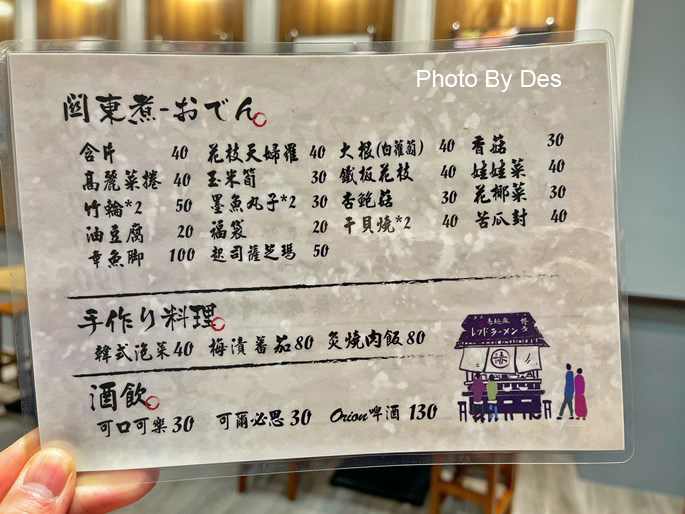 Photo By Des
関東煮-おでん
合片 40 花枝天婦羅 40 大根(白蘿蔔) 40 香菇 30
高麗菜捲 40 玉米筍 30 鐵板花枝 40 娃娃菜 40
竹輪*2 50 墨魚丸子*2 30 杏鮑菇 30 花椰菜 30
油豆腐 20 福袋 20 干貝燒*2 40 苦瓜封 40
章魚脚 100 起司薩芝瑪 50
手作り料理
韓式泡菜 40 梅漬蕃茄 80 炙燒肉飯 80
酒飲
可口可樂 30 可爾必思 30 Orion啤酒 130
レッドラーメン